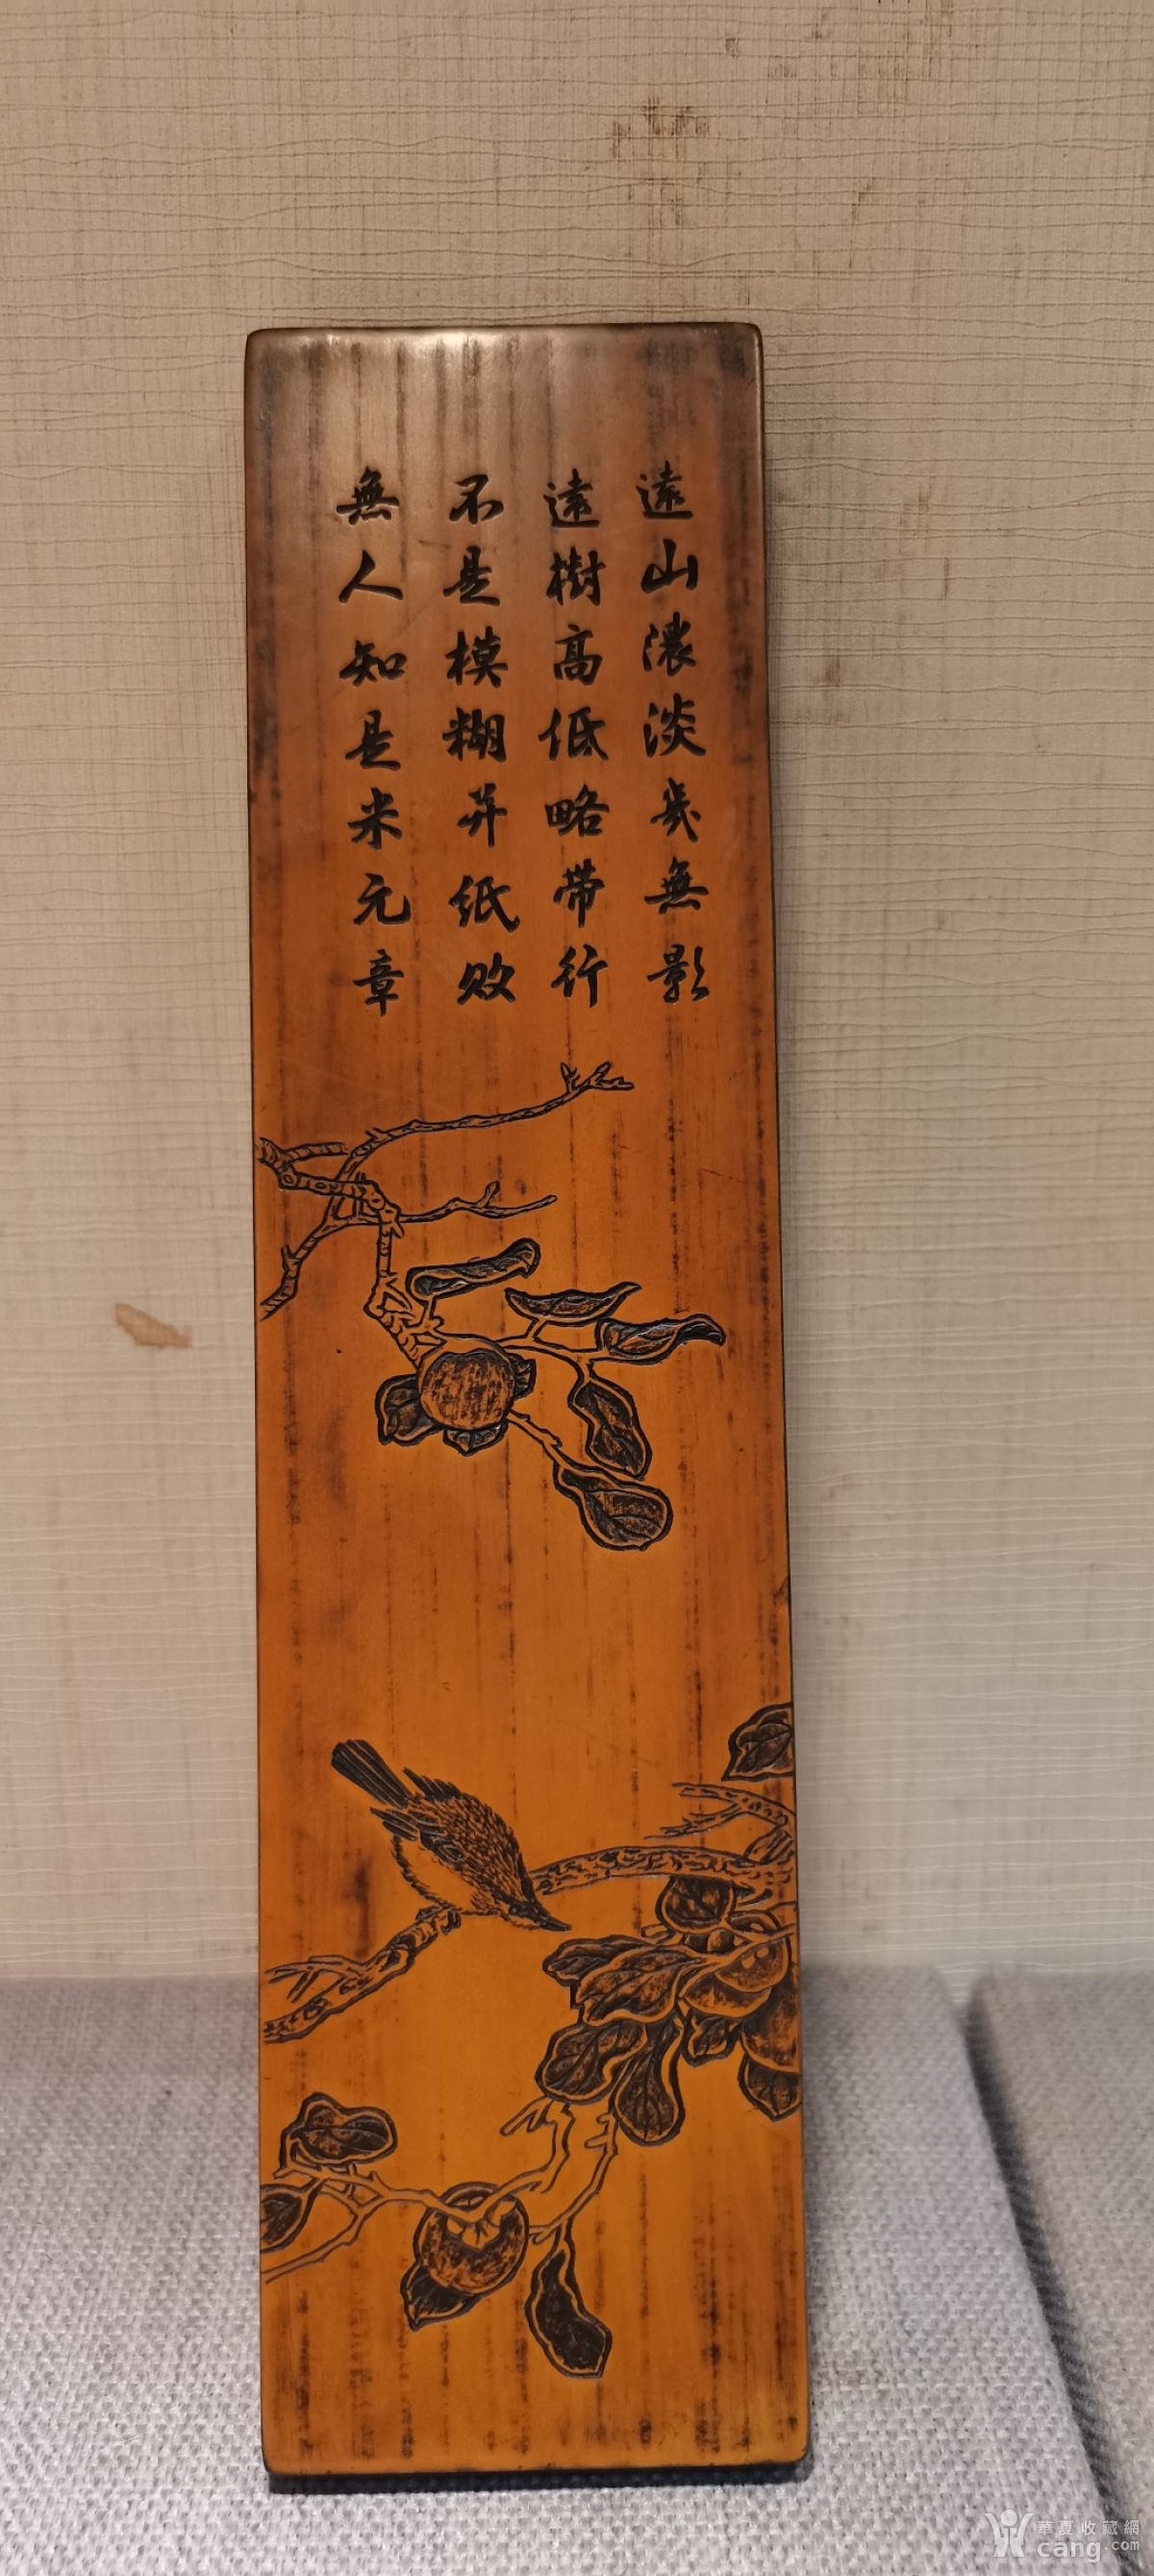 遠山濃淡幾無影
遠樹高低略帶行
不是模糊并纸败
無人知是米元章
華夏收藏網
cang.com